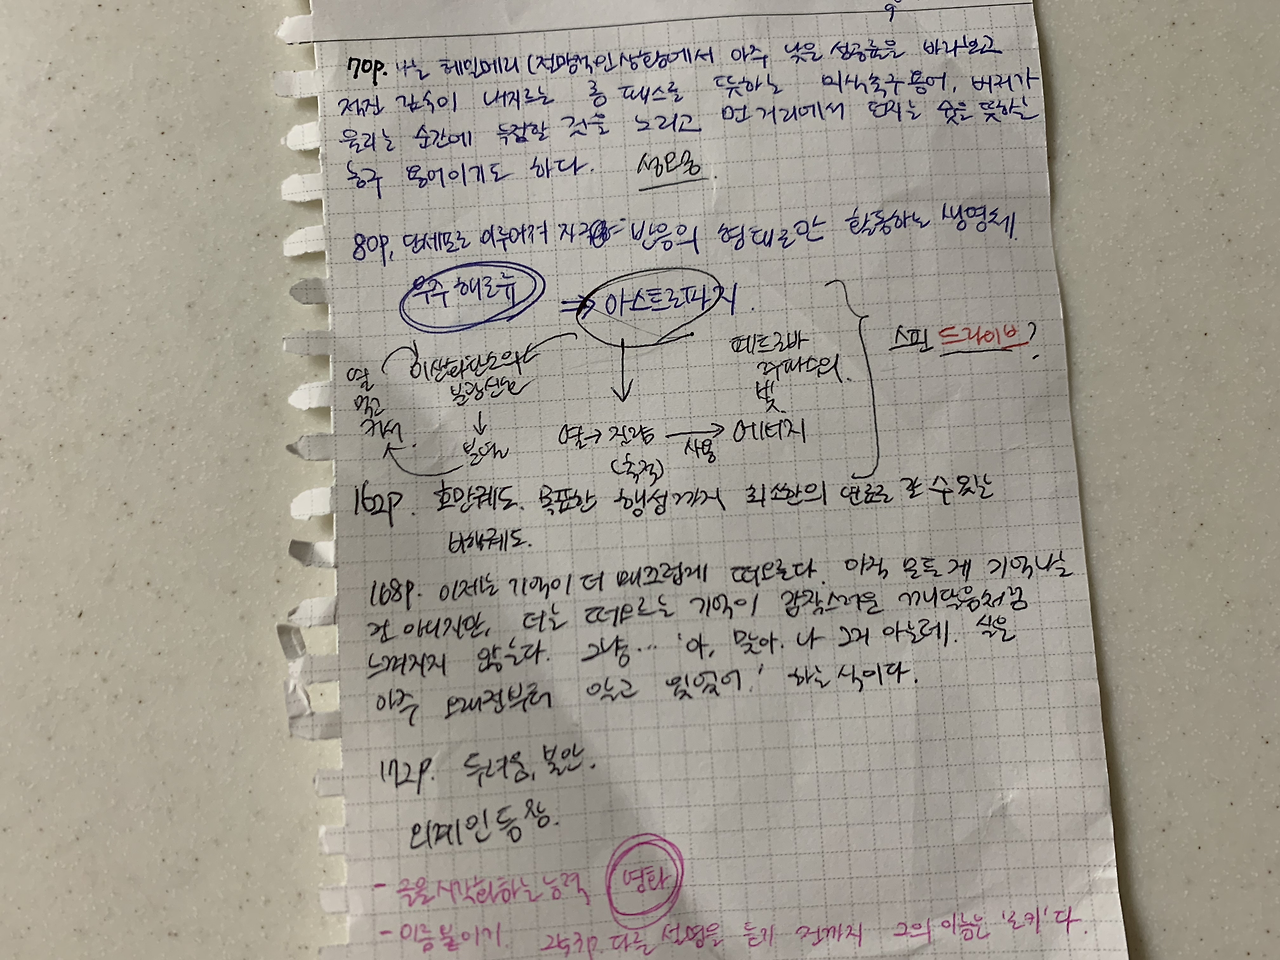 70p. 나는 헤일메리 (절망적인 상황에서 아주 낮은 성공률을 바라보고
적진 깊숙이 내지르는 롱 패스를 뜻하는 미식축구 용어, 버저가
울리는 순간에 득점할 것을 노리고 먼 거리에서 던지는 슛을 뜻하는
농구 용어이기도 하다.
80p. 단세포로 이루어져 자극 반응의 형태로만 활동하는 생명체.
우주 해조류 ⇒ 아스트로파지.
스핀 드라이브?
열 먹고 커져.
이산화탄소의
분광선
↓
분열
열 → 질량 → 에너지
(축적)
사용
페트로바
주파수의
빛
162p. 호만궤도. 목표한 행성까지 최소한의 연료로 갈 수 있는
비행궤도.
168p. 이제는 기억이 더 매끄럽게 떠오른다. 아직 모든 게 기억나는
건 아니지만, 더는 떠오르는 기억이 갑작스러운 깨달음처럼
느껴지지 않는다. 그냥… '아, 맞아. 나 그거 아는데. 실은
아주 오래전부터 알고 있었어.' 하는 식이다.
172p. 두려움, 불안.
외계인 등장.
- 글을 시각화하는 능력
- 이름 붙이기. 253p. 다른 설명을 듣기 전까지 그의 이름은 '로키'다.